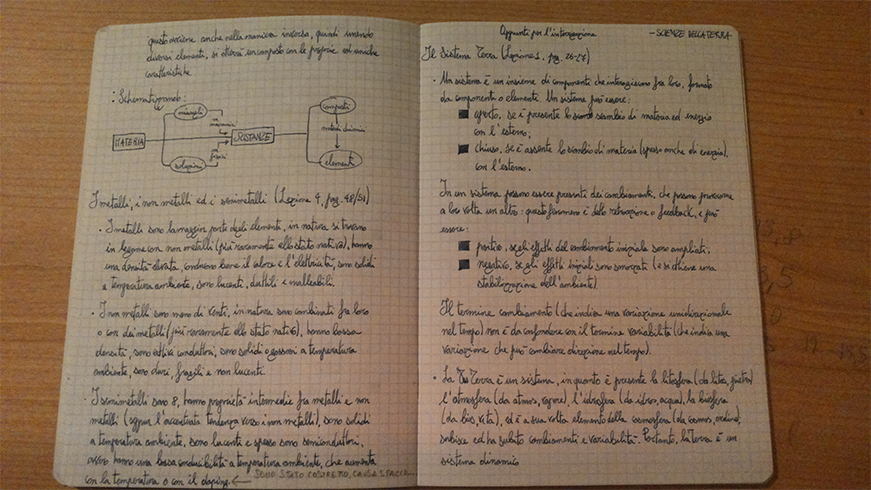 questo avviene anche nella maniera inversa, quindi unendo
diversi elementi, si otterrà un composto con le proprie ed uniche
caratteristiche
Schematizzando:
miscugli
composti
m. meccanici
metodi chimici
MATERIA
SOSTANZE
fisici
soluzioni
elementi
I metalli, i non metalli ed i semimetalli (Lezione 4, pag. 48/51)
• I metalli sono la maggior parte degli elementi, in natura si trovano
in legame con non metalli (più raramente allo stato nativo), hanno
una densità elevata, conducono bene il calore e l'elettricità, sono solidi
a temperatura ambiente, sono lucenti, duttili e malleabili.
• I non metalli sono meno di venti, in natura sono combinati fra loro
o con dei metalli (più raramente allo stato nativo), hanno bassa
densità, sono cattivi conduttori, sono solidi o gassosi a temperatura
ambiente, sono duri, fragili e non lucenti.
• I semimetalli sono 8, hanno proprietà intermedie fra metalli e non
metalli (seppur l'accentuata tendenza verso i non metalli), sono solidi
a temperatura ambiente, sono lucenti e spesso sono semiconduttori,
ovvero hanno una bassa conducibilità a temperatura ambiente, che aumenta
con la temperatura o con il doping.
SONO STATO COSTRETTO, CAUSA SPAZIO...
Appunti per l'interrogazione
- SCIENZE DELLA TERRA
Il Sistema Terra (Lezione 1, pag. 26-27)
• Un sistema è un insieme di componenti che interagiscono fra loro, formato
da componenti o elementi. Un sistema può essere:
aperto, se è presente lo scambio di materia ed energia
con l'esterno;
chiuso, se è assente lo scambio di materia (spesso anche di energia),
con l'esterno.
In un sistema possono essere presenti dei cambiamenti, che possono provocarne
a loro volta un altro: questo fenomeno è detto retroazione o feedback, e può
essere:
positivo, se gli effetti del cambiamento iniziale sono ampliati;
negativo, se gli effetti iniziali sono smorzati (e si ottiene una
stabilizzazione dell'ambiente)
Il termine cambiamento (che indica una variazione unidirezionale
nel tempo) non è da confondere con il termine variabilità (che indica una
variazione che può cambiare direzione nel tempo).
• La Terra è un sistema, in quanto è presente la litosfera (da litos, pietra)
l'atmosfera (da atmos, vapore), l'idrosfera (da idros, acqua), la biosfera
(da bios, vita), ed è a sua volta elemento della cosmosfera (da cosmos, ordine),
subisce ed ha subito cambiamenti e variabilità. Pertanto, la Terra è un
sistema dinamico